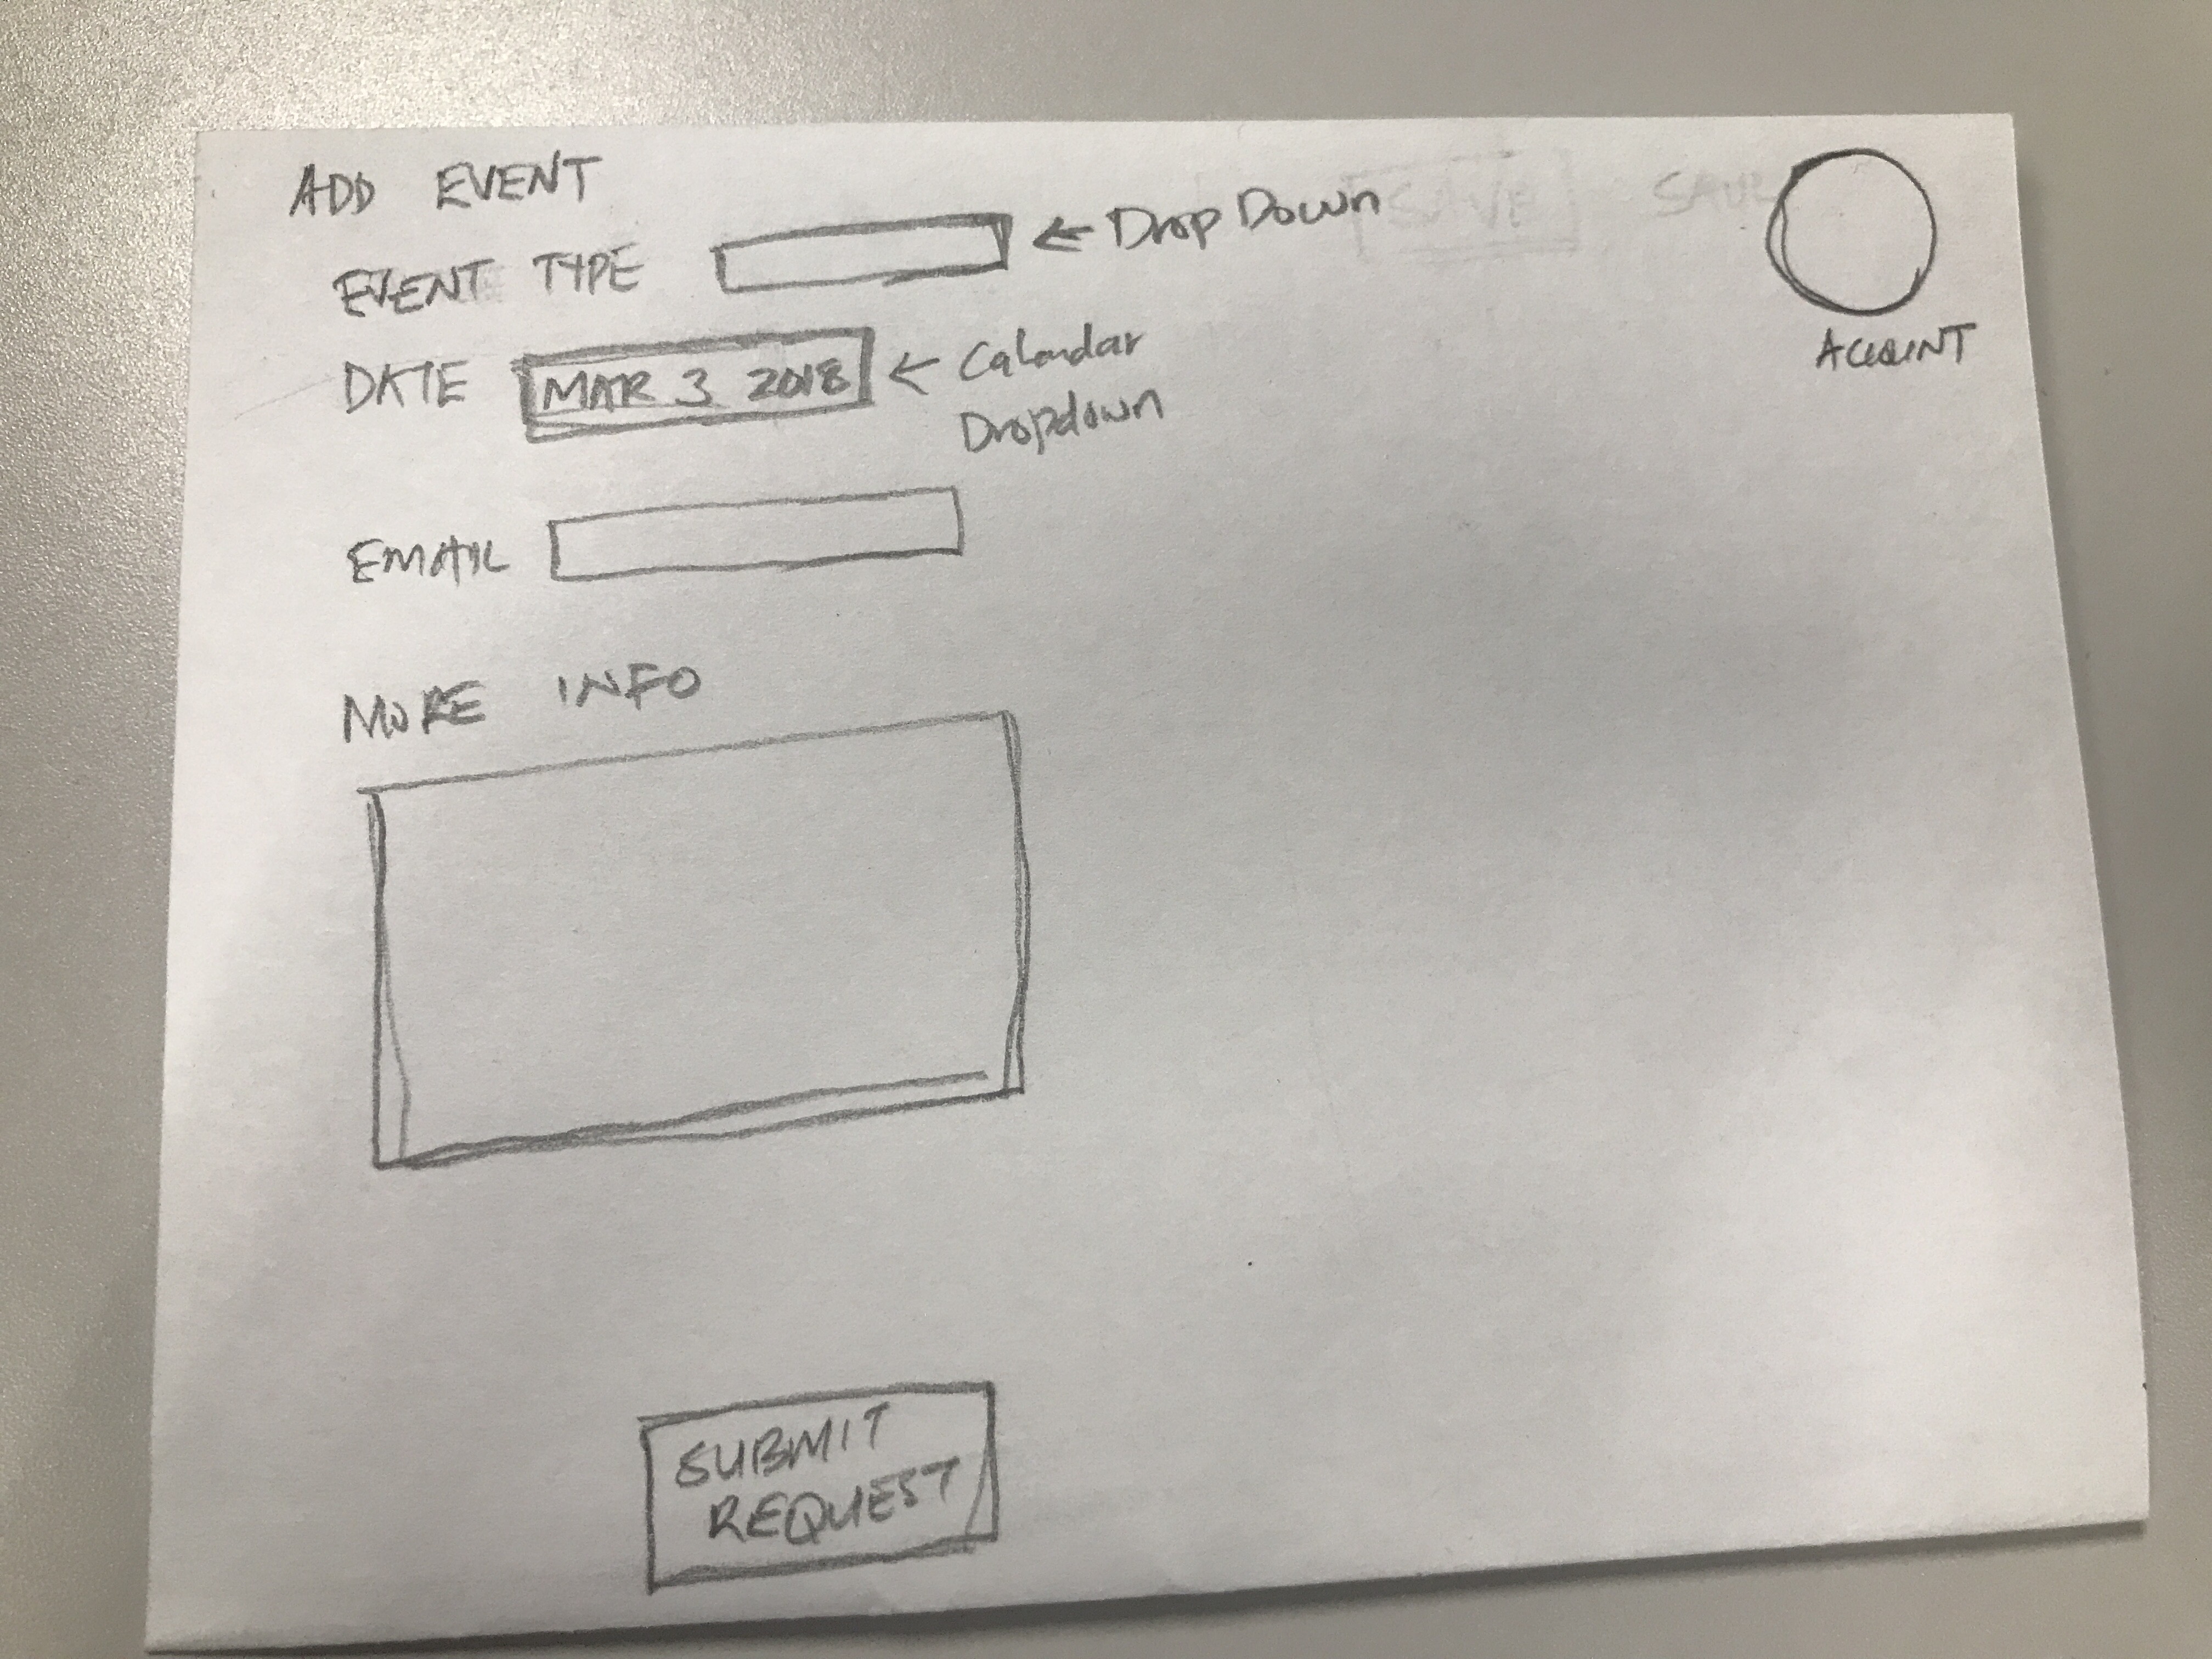 ADD EVENT
EVENT TYPE ← Drop Down
DATE MAR 3 2018 ← Calendar
Dropdown
EMAIL
MORE INFO
SUBMIT
REQUEST
ACCOUNT